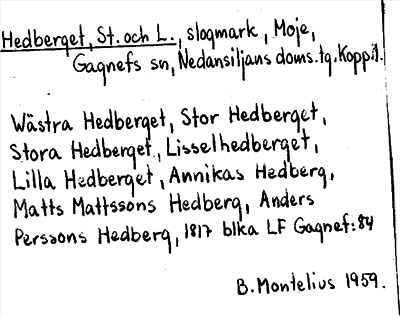 Hedberget, St. och L., slogmark, Moje,
Gagnefs sn, Nedansiljans doms.tg. Kopp.l.
Wästra Hedberget, Stor Hedberget,
Stora Hedberget, Lisselhedberget,
Lilla Hedberget, Annikas Hedberg,
Matts Mattssons Hedberg, Anders
Perssons Hedberg, 1817 blka LF Gagnef:84
B. Montelius 1959.